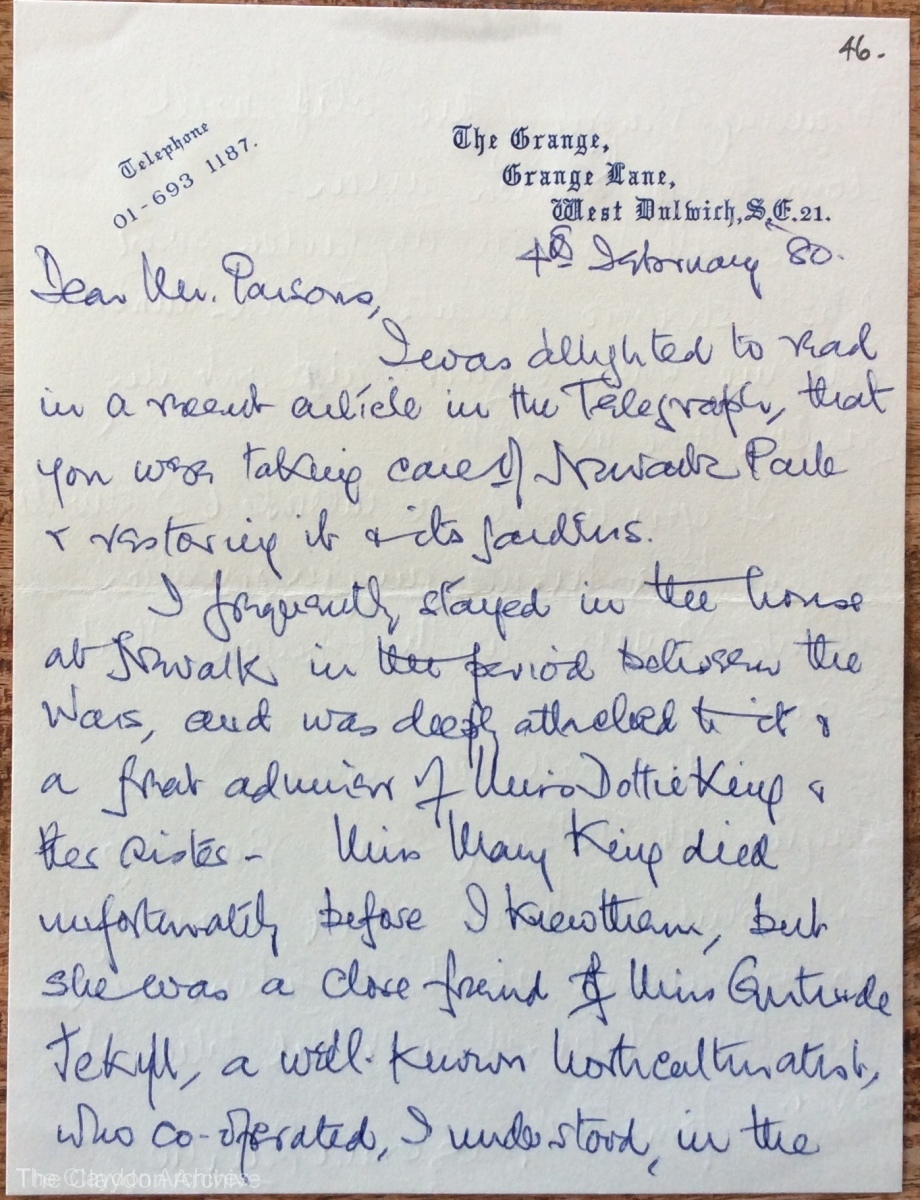 46.
Telephone
01-693 1187.
The Grange,
Grange Lane,
West Dulwich, S.E.21.
4th February 80.
Dear Mr. Parsons,
I was delighted to read
in a recent article in the Telegraph, that
you were taking care of Newark Park
& restoring it & its gardens.
I frequently stayed in the house
at Newark in the period between the
Wars, and was deeply attached to it &
a great admirer of Miss Dottie King &
Her Sister - Miss Mary King died
unfortunately before I knew them, but
she was a close friend of Miss Gertrude
Jekyll, a well-known horticulturalist,
who co-operated, I understood, in the
The Claydon Archive